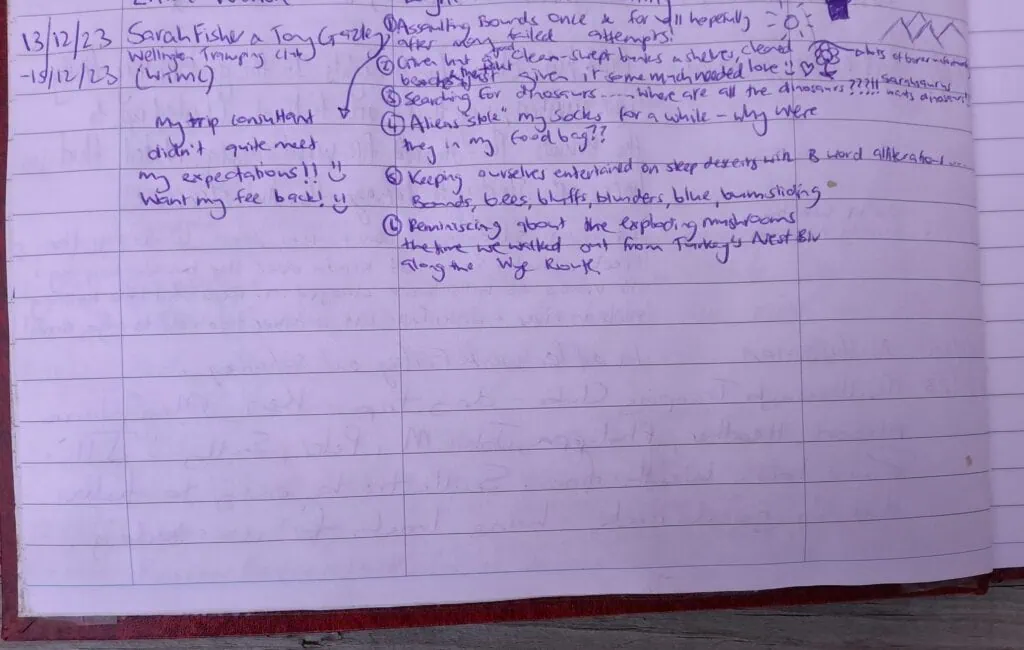 13/12/23
-15/12/23
Sarah Fisher & Tony Gazley
Wellington Tramping Club
(WTMC)
My trip consultant
didn't quite meet
my expectations!!
Want my fee back!
① Assaulting Bounds once & for all hopefully
after many failed attempts!
② Given hut a good clean - swept bunks & shelves, cleaned
benches & given it some much needed love
③ Searching for dinosaurs ..... where are all the dinosaurs ???!!
Sarahsaurus
meets dinosaur
④ Aliens "stole" my socks for a while - why were
they in my food bag??
⑤ Keeping ourselves entertained on steep descents with B word alliteration.....
Bounds, bees, bluffs, blunders, blue, bumsliding
⑥ Reminiscing about the exploding mushrooms
the time we walked out from Turkey's Nest Biv
along the Wye River